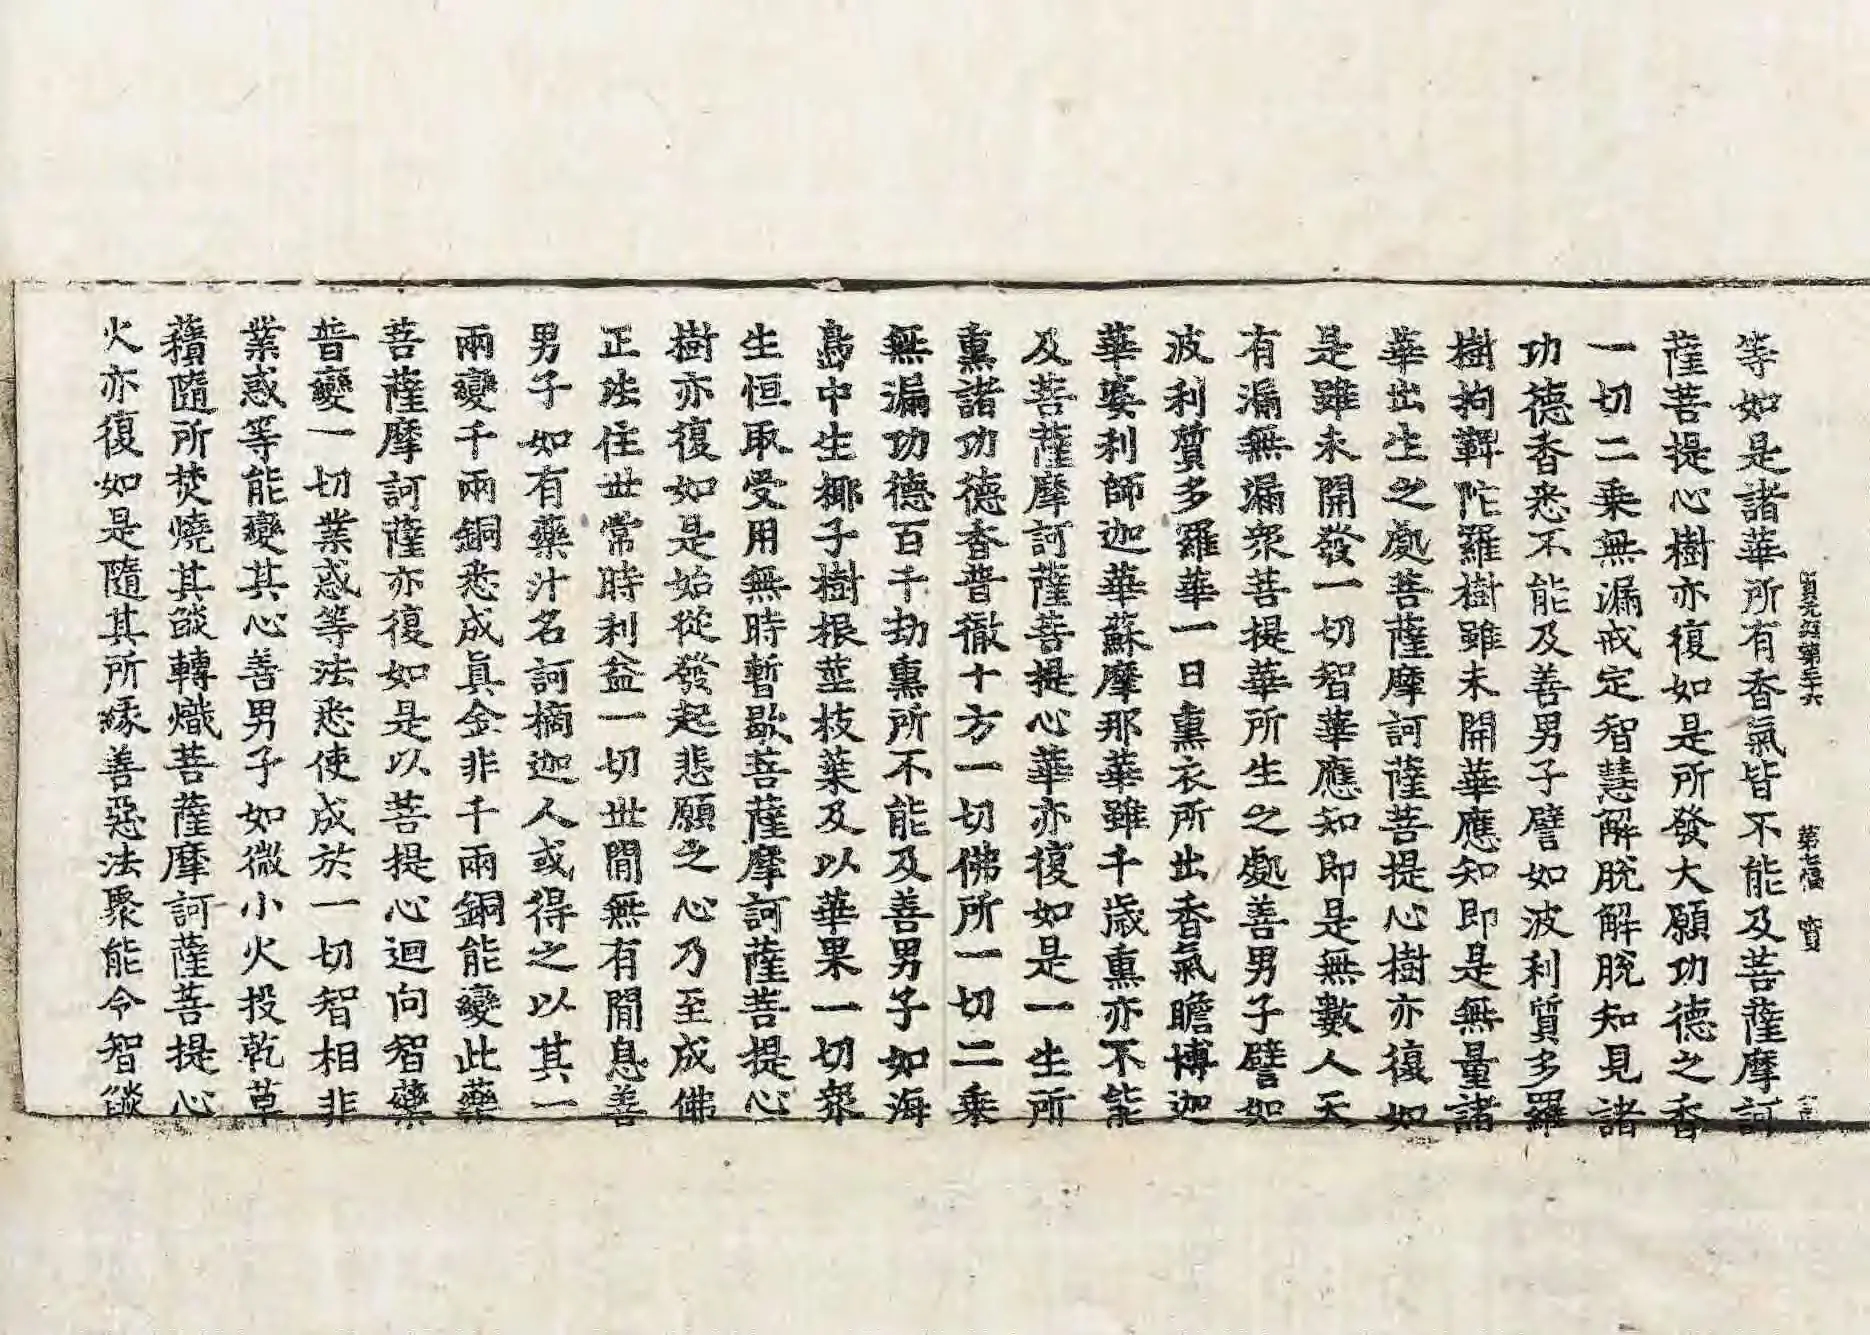 等如是諸華所有香氣皆不能及菩薩摩訶
薩菩提心樹亦復如是所發大願功德之香
一切二乘無漏戒定智慧解脫解脫知見諸
功德香悉不能及善男子譬如波利質多羅
樹拘鞞陀羅樹雖未開華應知即是無量諸
華出生之處菩薩摩訶薩菩提心樹亦復如
是雖未開發一切智華應知即是無數人天
有漏無漏衆菩提華所生之處善男子譬如
波利質多羅華一日熏衣所出香氣瞻博迦
華婆利師迦華蘇摩那華雖千歲熏亦不能
及菩薩摩訶薩菩提心華亦復如是一生所
熏諸功德香普徹十方一切佛所一切二乘
無漏功德百千劫熏所不能及善男子如海
島中生椰子樹根莖枝葉及以華果一切衆
生恒取受用無時暫歇菩薩摩訶薩菩提心
樹亦復如是始從發起悲願之心乃至成佛
正法住世常時利益一切世間無有間息善
男子如有藥汁名訶摘迦人或得之以其一
兩變千兩銅悉成眞金非千兩銅能變此藥
菩薩摩訶薩亦復如是以菩提心迴向智藥
普變一切業惑等法悉使成於一切智相非
業惑等能變其心善男子如微小火投乾草
積隨所焚燒其燄轉熾菩薩摩訶薩菩提心
火亦復如是隨其所緣善惡法聚能令智燄